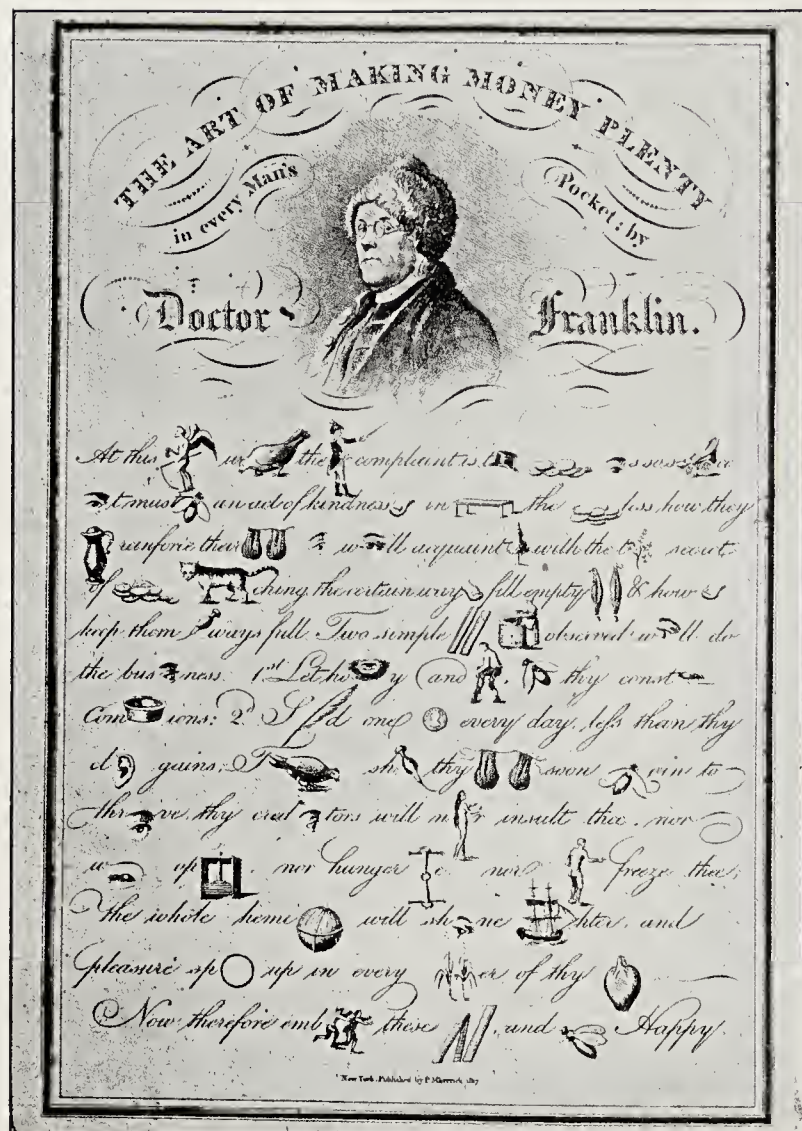 THE ART OF MAKING MONEY PLENTY
in every Man's Pocket; by
Doctor Franklin.
At this un the complaint is t
t must an act of kindness in the less how they
ranforce their w ll acquaint with the t secret
of ching the certain way fill empty & how
keep them ways full. Two simple observed w ll do
the bus ness. 1st Let ho y and thy const
Com ions: 2d. S d one every day, less than thy
cl gains; T sh thy soon gin to
thr ve thy cred tors will n r insult thee, nor
w op nor hunger e nor freeze thee,
the whole hemi will sh ne hter, and
pleasure sp up in every er of thy
Now therefore emb these and Happy.
New York. Published by P. Maverick